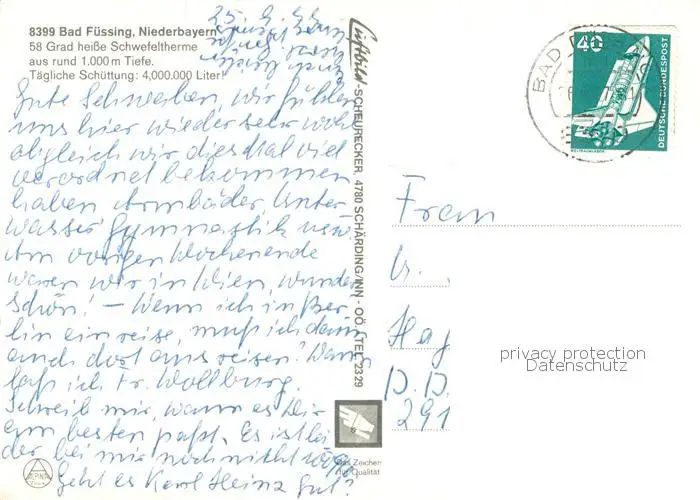 8399 Bad Füssing, Niederbayern
58 Grad heiße Schwefeltherme
aus rund 1.000 m Tiefe.
Tägliche Schüttung: 4,000.000 Liter!
25. 9.
Gute Schwester, wir fühlen
uns hier wieder sehr wohl
obgleich wir diesmal viel
verordnet bekommen
haben Armbäder Unter
wasser Gymnastik usw
Am vorigen Wochenende
waren wir in Wien, wunder
schön! – Wenn ich in Ber
lin einreise, muß ich dann
auch dort ausreisen? Dann
laß ich Fr. Wollburg.
Schreib mir, wann es Dir
am besten paßt. Es ist lei
der bei mir noch nicht
Geht es Karl Heinz gut?
Luftbild-SCHEURECKER, 4780 SCHÄRDING/INN - OÖ., TEL. 2329
Das Zeichen
für Qualität
ALPINA
BAD FÜS
40
DEUTSCHE BUNDESPOST
WELTRAUMLABOR
Frau
Hag
D.D.
291
privacy protection
Datenschutz